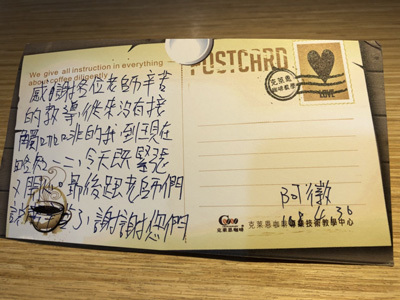 We give all instruction in everything
about coffee diligently
感謝各位老師辛苦
的教導,從來沒有接
觸咖啡的我,到現在
略知一二,今天既緊張
又開心。最後跟老師們
說辛苦了,謝謝您們
POSTCARD
克萊恩
LOVE
阿徽
克萊恩咖啡
克萊恩咖啡專業技術教學中心